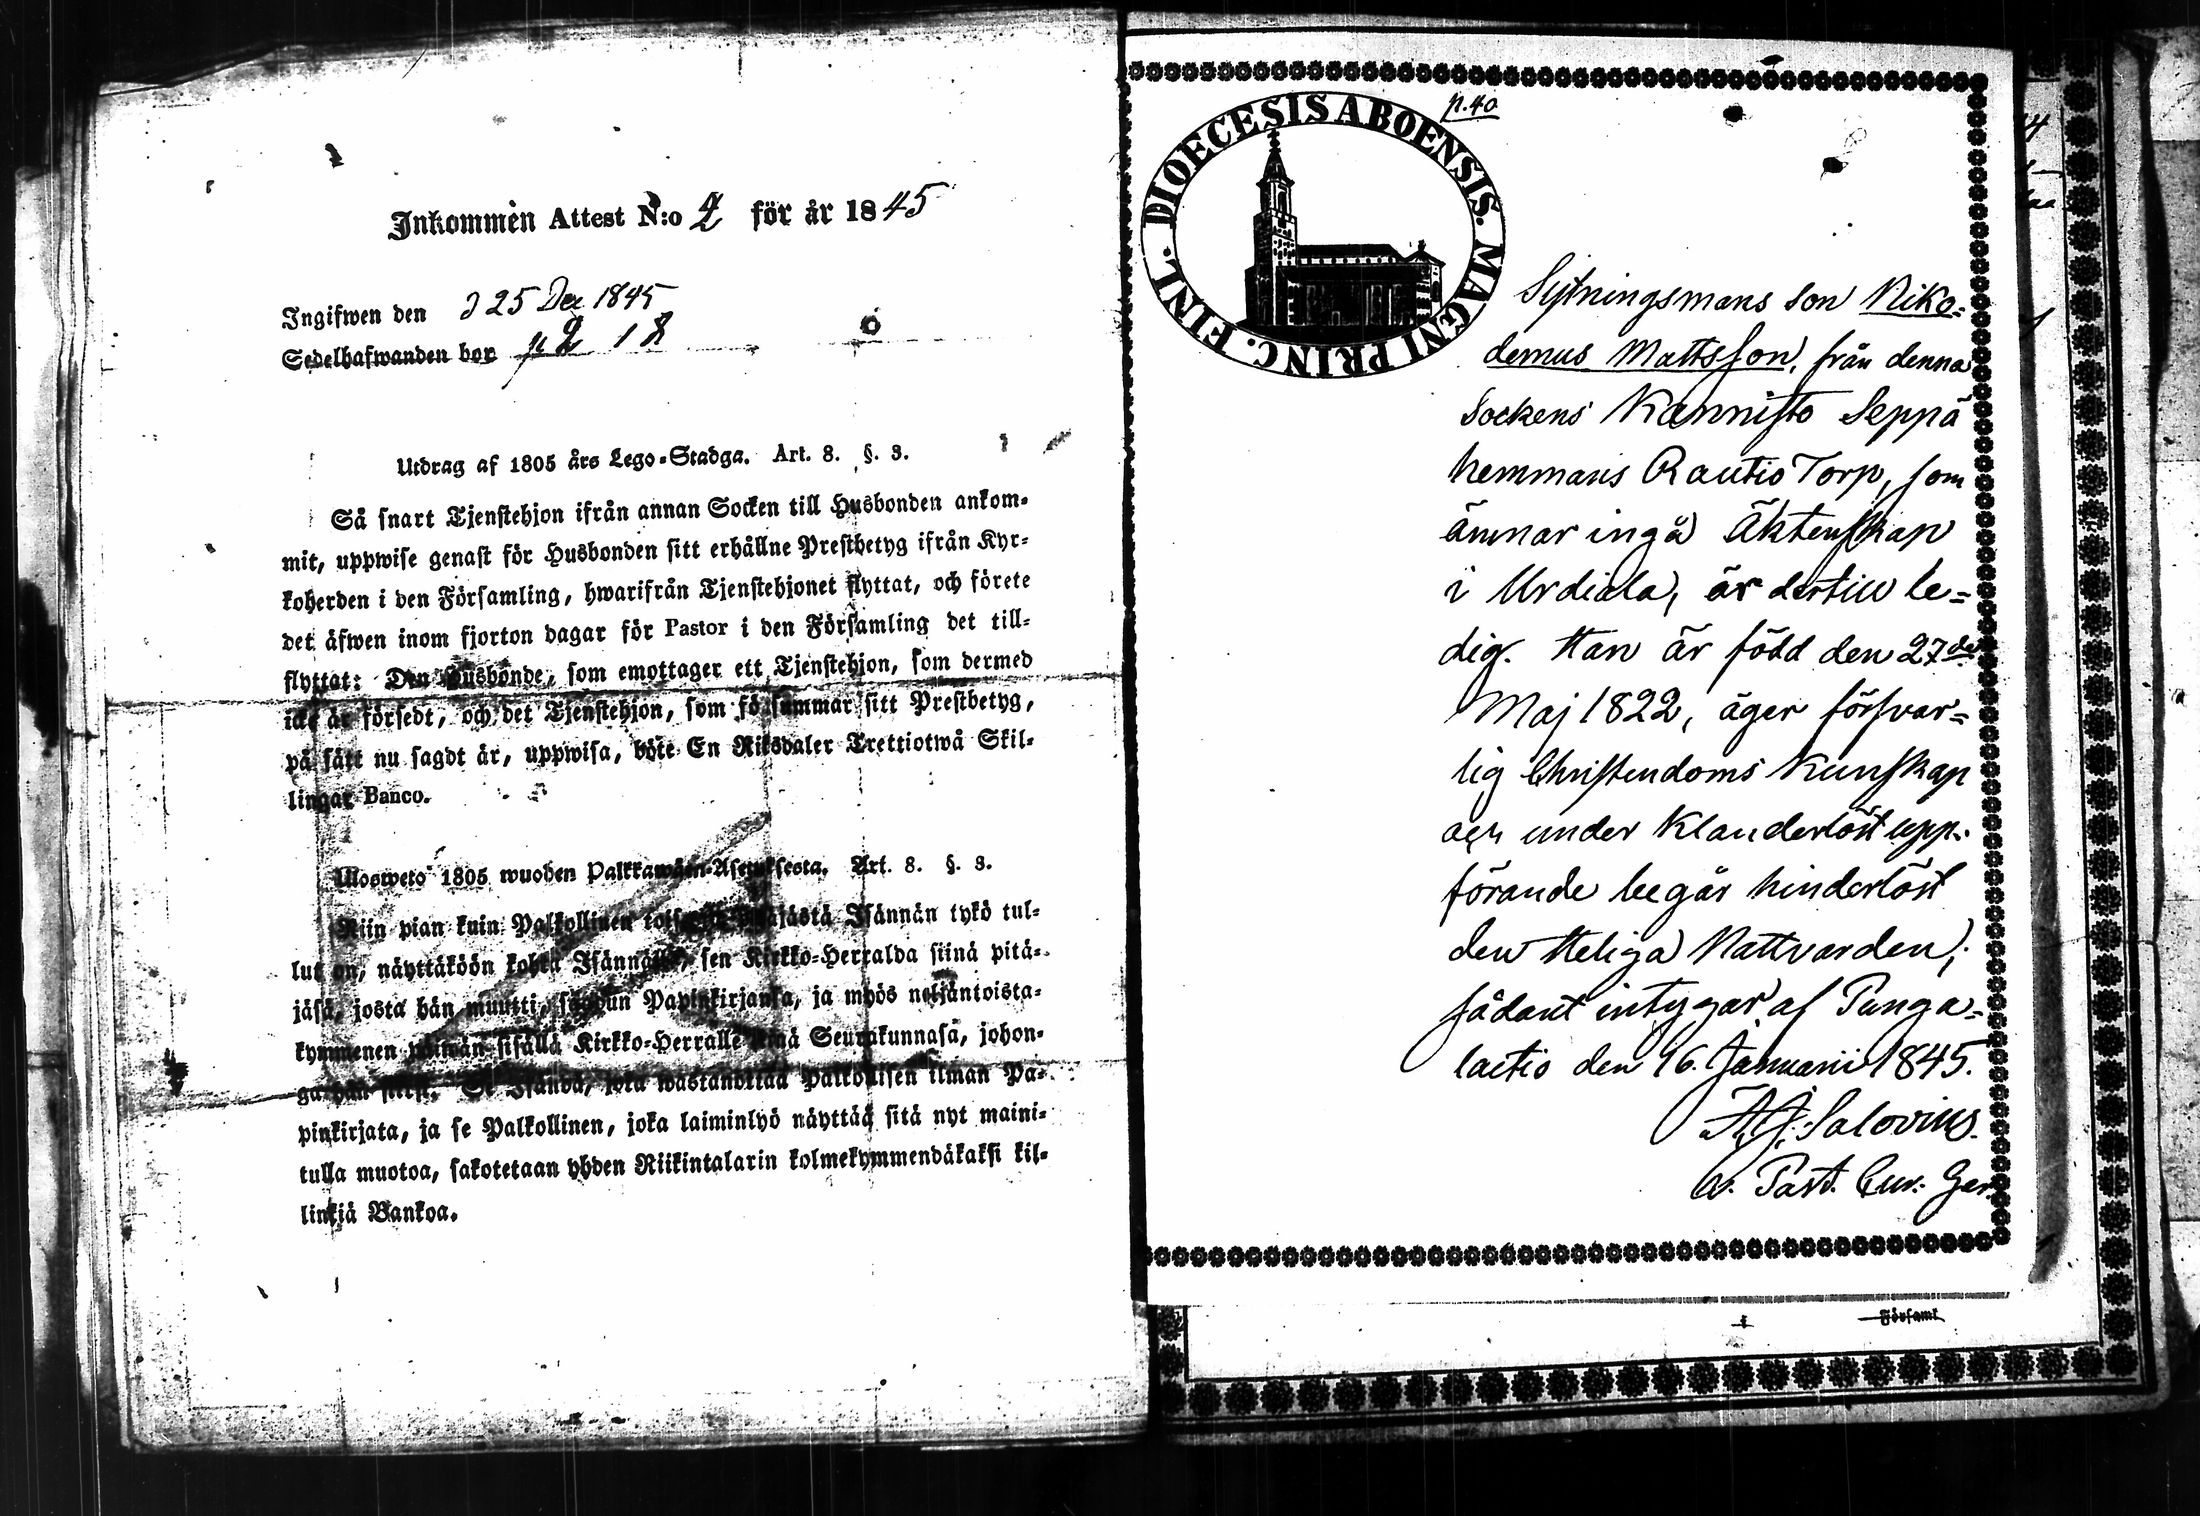 Inkommen Attest N:o 2 för år 1845
Ingifwen den d 25 Dec 1845
Sedelhafwanden bor
Utdrag af 1805 års Lego-Stadga. Art. 8. §. 3.
Så snart Tjenstehjon ifrån annan Socken till Husbonden ankom-
mit, uppwise genast för Husbonden sitt erhållne Prestbetyg ifrån Kyr-
koherden i den Församling, hwarifrån Tjenstehjonet flyttat, och förete
det äfwen inom fjorton dagar för Pastor i den Församling det till-
flyttat: Den Husbonde, som emottager ett Tjenstehjon, som dermed
icke är försedt, och det Tjenstehjon, som försummar sitt Prestbetyg,
på sätt nu sagdt är, uppwisa, böte En Riksdaler Trettiotwå Skil-
lingar Banco.
Ulosweto 1805 wuoden Palkkawäen-Asetuksesta. Art. 8. §. 3.
Niin pian kuin Palkollinen toisesta pitäjästä Isännän tykö tul-
lut on, näyttäköön kohta Isännälle, sen Kirkko-Herralda siinä pitä-
jäsä, josta hän muutti, saadun Papinkirjansa, ja myös neljäntoista-
kymmenen päiwän sisällä Kirkko-Herralle siinä Seurakunnasa, johon-
ga hän siirsi. Se Isändä, joka wastanottaa Palkollisen ilman Pa-
pinkirjata, ja se Palkollinen, joka laiminlyö näyttää sitä nyt maini-
tulla muotoa, sakotetaan yhden Riikintalarin kolmekymmendäkaksi kil-
linkiä Bankoa.
p.40
DIOECESIS ABOENSIS. MAGNI PRINC. FINL.
Sytningsmans son Niko-
demus Mattsson, från denna
Sockens Kannisto Seppä
hemmans Rautio Torp, som
ämnar ingå Äktenskap
i Urdiala, är dertill le-
dig. Han är född den 27de
Maj 1822, äger försvar-
lig Christendoms Kunskap
och under Klanderlöst upp-
förande begår hinderlöst
den Heliga Nattvarden;
sådant intygar af Punga-
laitio den 16. Januarii 1845.
Salovius.
v. Past. Cur. Ger.
Församl